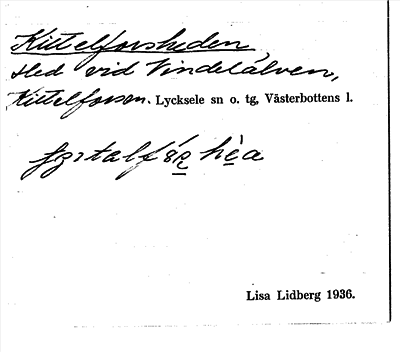 Kittelforsheden,
hed vid Vindelälven,
Kittelforsen. Lycksele sn o. tg, Västerbottens l.
Lisa Lidberg 1936.